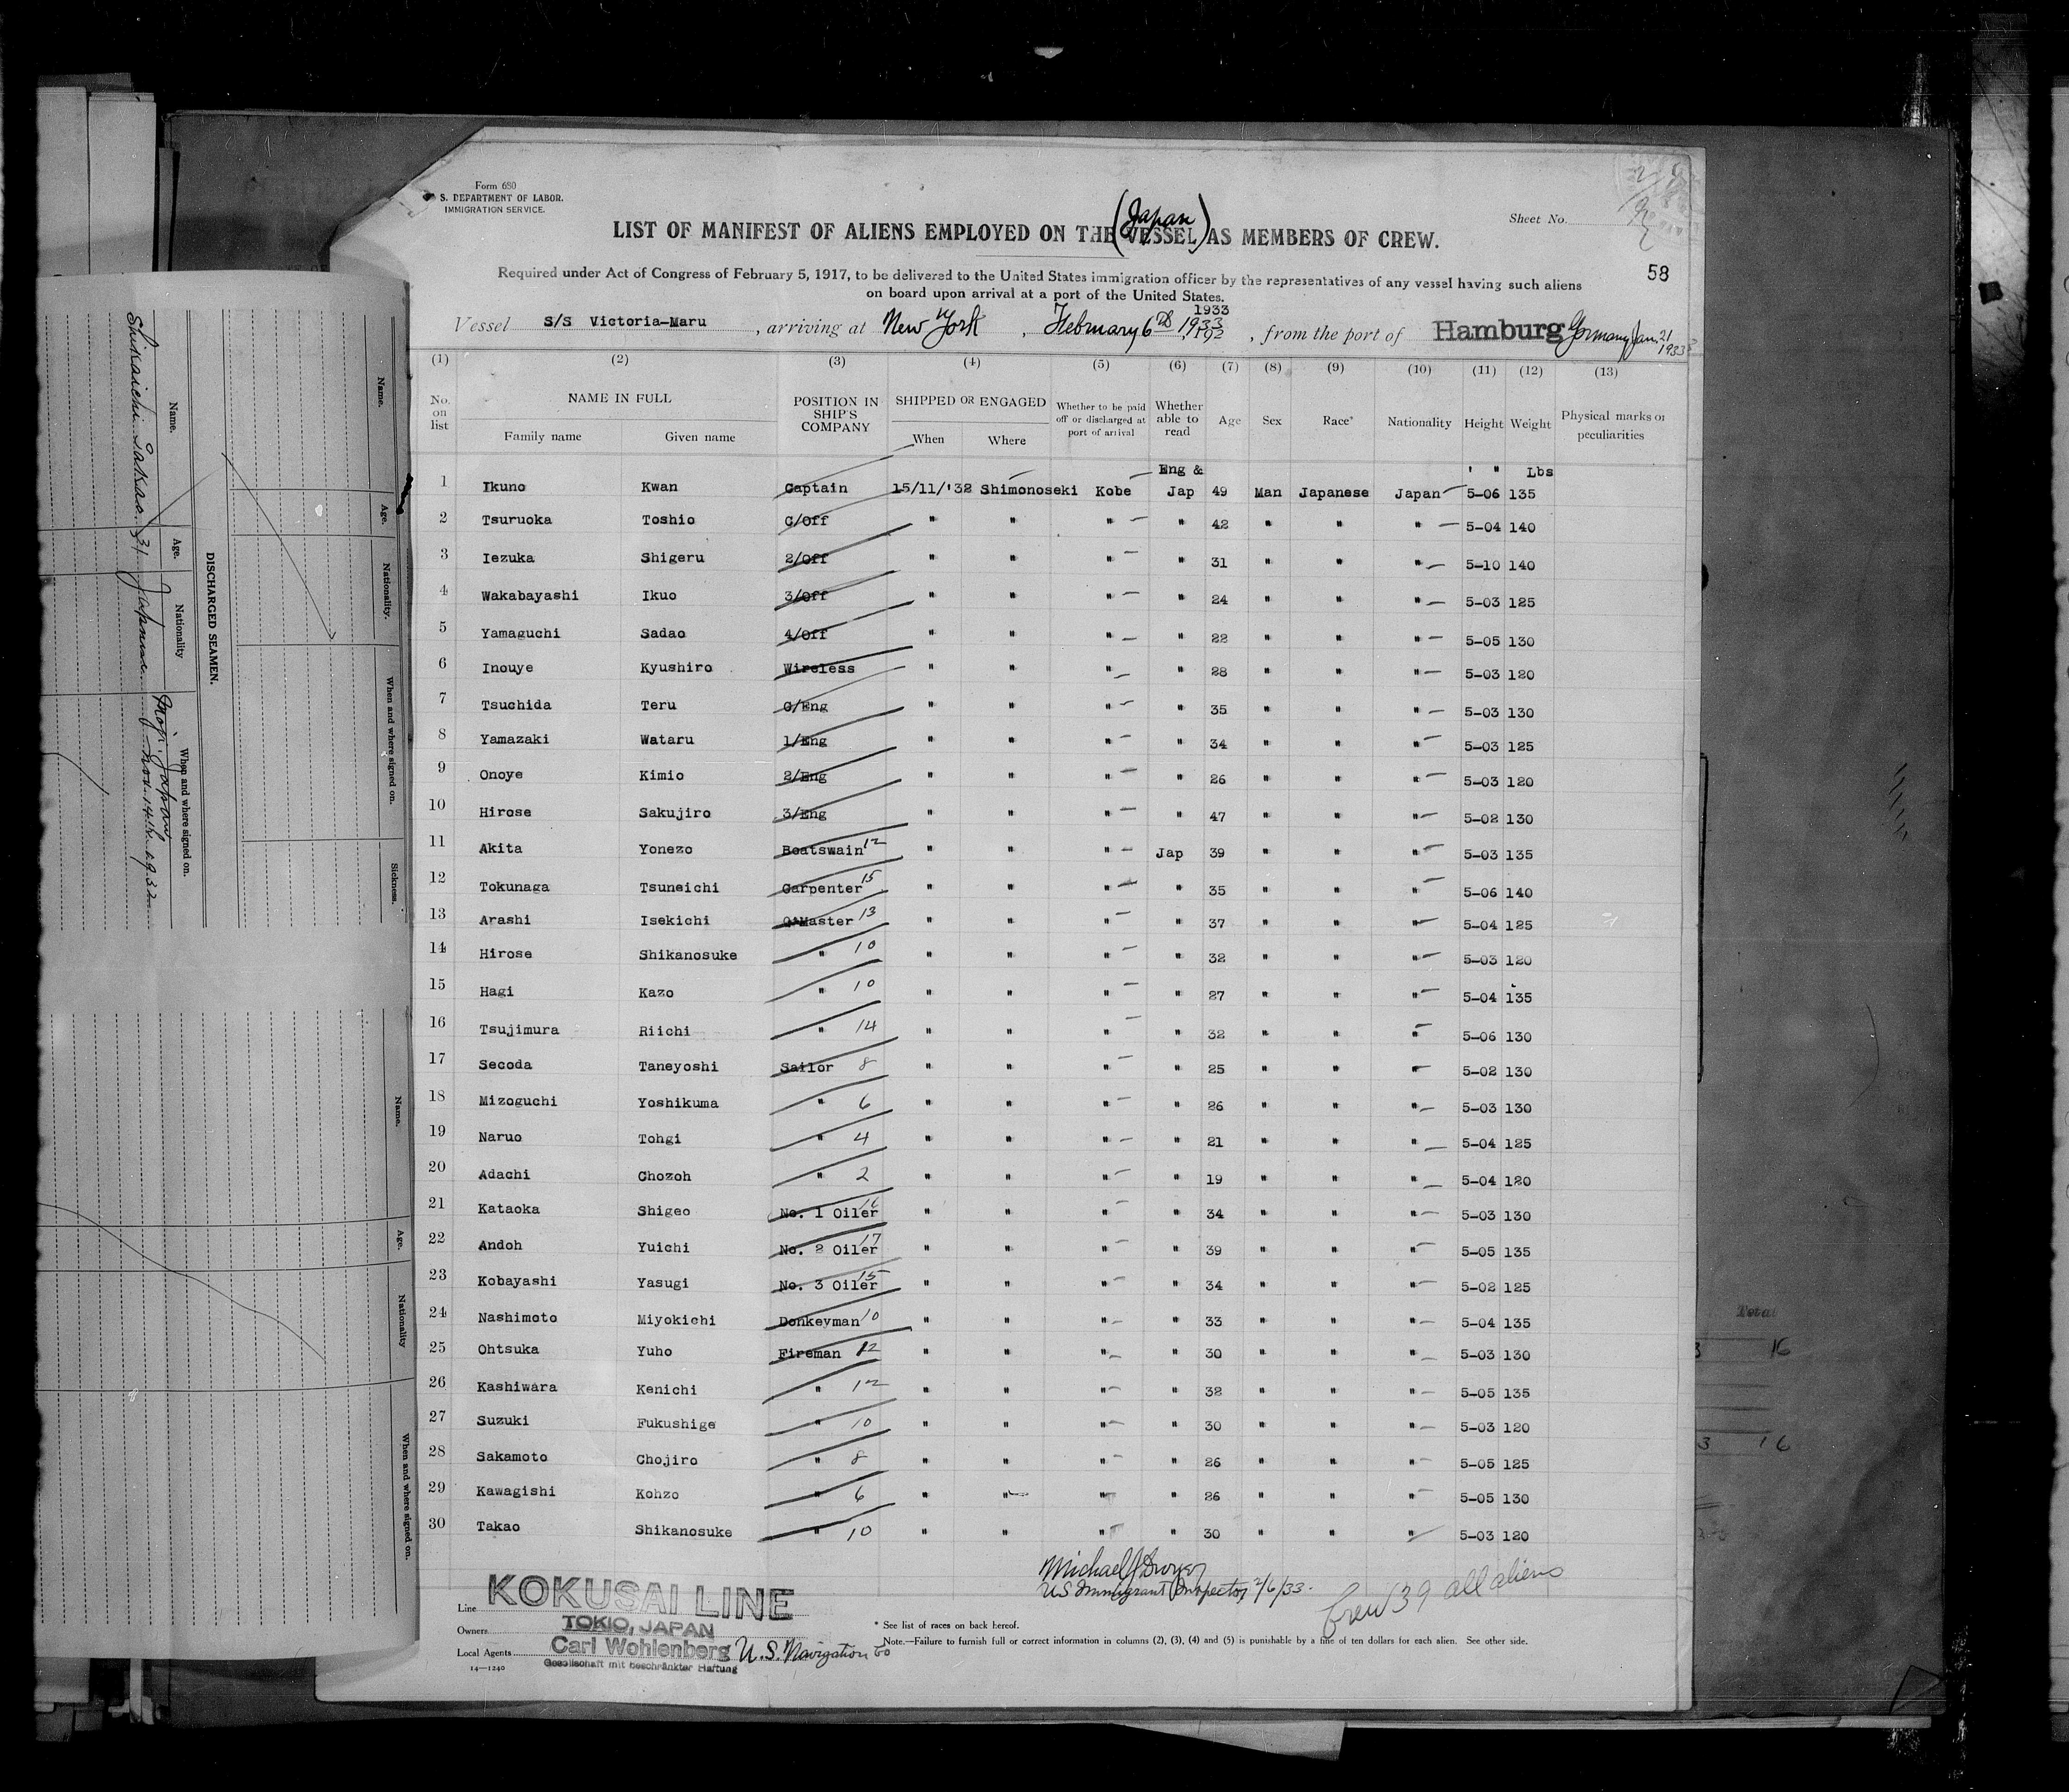 Form 680
S. DEPARTMENT OF LABOR.
IMMIGRATION SERVICE.
Sheet No.
(Japan)
LIST OF MANIFEST OF ALIENS EMPLOYED ON THE VESSEL AS MEMBERS OF CREW.
58
Required under Act of Congress of February 5, 1917, to be delivered to the United States immigration officer by the representatives of any vessel having such aliens
on board upon arrival at a port of the United States.
Vessel S/S Victoria-Maru, arriving at New York, February 6th 1933 1933, from the port of Hamburg Germany Jan. 21 1933
(1) (2) (3) (4) (5) (6) (7) (8) (9) (10) (11) (12) (13)
No. on list NAME IN FULL Family name Given name POSITION IN SHIP'S COMPANY SHIPPED OR ENGAGED When Where Whether to be paid off or discharged at port of arrival Whether able to read Age Sex Race* Nationality Height Weight Physical marks or peculiarities
Eng & ' " Lbs
1 Ikuno Kwan Captain 15/11/'32 Shimonoseki Kobe Jap 49 Man Japanese Japan 5-06 135
2 Tsuruoka Toshio C/Off " " " " 42 " " " 5-04 140
3 Iezuka Shigeru 2/Off " " " " 31 " " " 5-10 140
4 Wakabayashi Ikuo 3/Off " " " " 24 " " " 5-03 125
5 Yamaguchi Sadao 4/Off " " " " 22 " " " 5-05 130
6 Inouye Kyushiro Wireless " " " " 28 " " " 5-03 120
7 Tsuchida Teru C/Eng " " " " 35 " " " 5-03 130
8 Yamazaki Wataru 1/Eng " " " " 34 " " " 5-03 125
9 Onoye Kimio 2/Eng " " " " 26 " " " 5-03 120
10 Hirose Sakujiro 3/Eng " " " " 47 " " " 5-02 130
11 Akita Yonezo Boatswain 12 " " " Jap 39 " " " 5-03 135
12 Tokunaga Tsuneichi Carpenter 15 " " " " 35 " " " 5-06 140
13 Arashi Isekichi Q'Master 13 " " " " 37 " " " 5-04 125
14 Hirose Shikanosuke " 10 " " " " 32 " " " 5-03 120
15 Hagi Kazo " 10 " " " " 27 " " " 5-04 135
16 Tsujimura Riichi " 14 " " " " 32 " " " 5-06 130
17 Secoda Taneyoshi Sailor 8 " " " " 25 " " " 5-02 130
18 Mizoguchi Yoshikuma " 6 " " " " 26 " " " 5-03 130
19 Naruo Tohgi " 4 " " " " 21 " " " 5-04 125
20 Adachi Chozoh " 2 " " " " 19 " " " 5-04 120
21 Kataoka Shigeo No. 1 Oiler 16 " " " " 34 " " " 5-03 130
22 Andoh Yuichi No. 2 Oiler 17 " " " " 39 " " " 5-05 135
23 Kobayashi Yasugi No. 3 Oiler 15 " " " " 34 " " " 5-02 125
24 Nashimoto Miyokichi Donkeyman 10 " " " " 33 " " " 5-04 135
25 Ohtsuka Yuho Fireman 12 " " " " 30 " " " 5-03 130
26 Kashiwara Kenichi " 12 " " " " 32 " " " 5-05 135
27 Suzuki Fukushige " 10 " " " " 30 " " " 5-03 120
28 Sakamoto Chojiro " 8 " " " " 26 " " " 5-05 125
29 Kawagishi Kohzo " 6 " " " " 26 " " " 5-05 130
30 Takao Shikanosuke " 10 " " " " 30 " " " 5-03 120
Michael J Dwyer
US Immigrant Inspector 2/6/33.
Crew 39 all aliens
Line KOKUSAI LINE
Owners TOKIO, JAPAN
Local Agents Carl Wohlenberg U.S. Navigation Co
Gesellschaft mit beschränkter Haftung
14—1240
* See list of races on back hereof.
Note.—Failure to furnish full or correct information in columns (2), (3), (4) and (5) is punishable by a fine of ten dollars for each alien. See other side.
Name. Age. Nationality. When and where signed on. Sickness.
DISCHARGED SEAMEN.
Name. Age. Nationality When and where signed on.
Shikaichi Sakao. 31 Japanese Moji, Japan Nov. 14th. 1932
Name. Age. Nationality When and where signed on.
Total
3 16
3 16